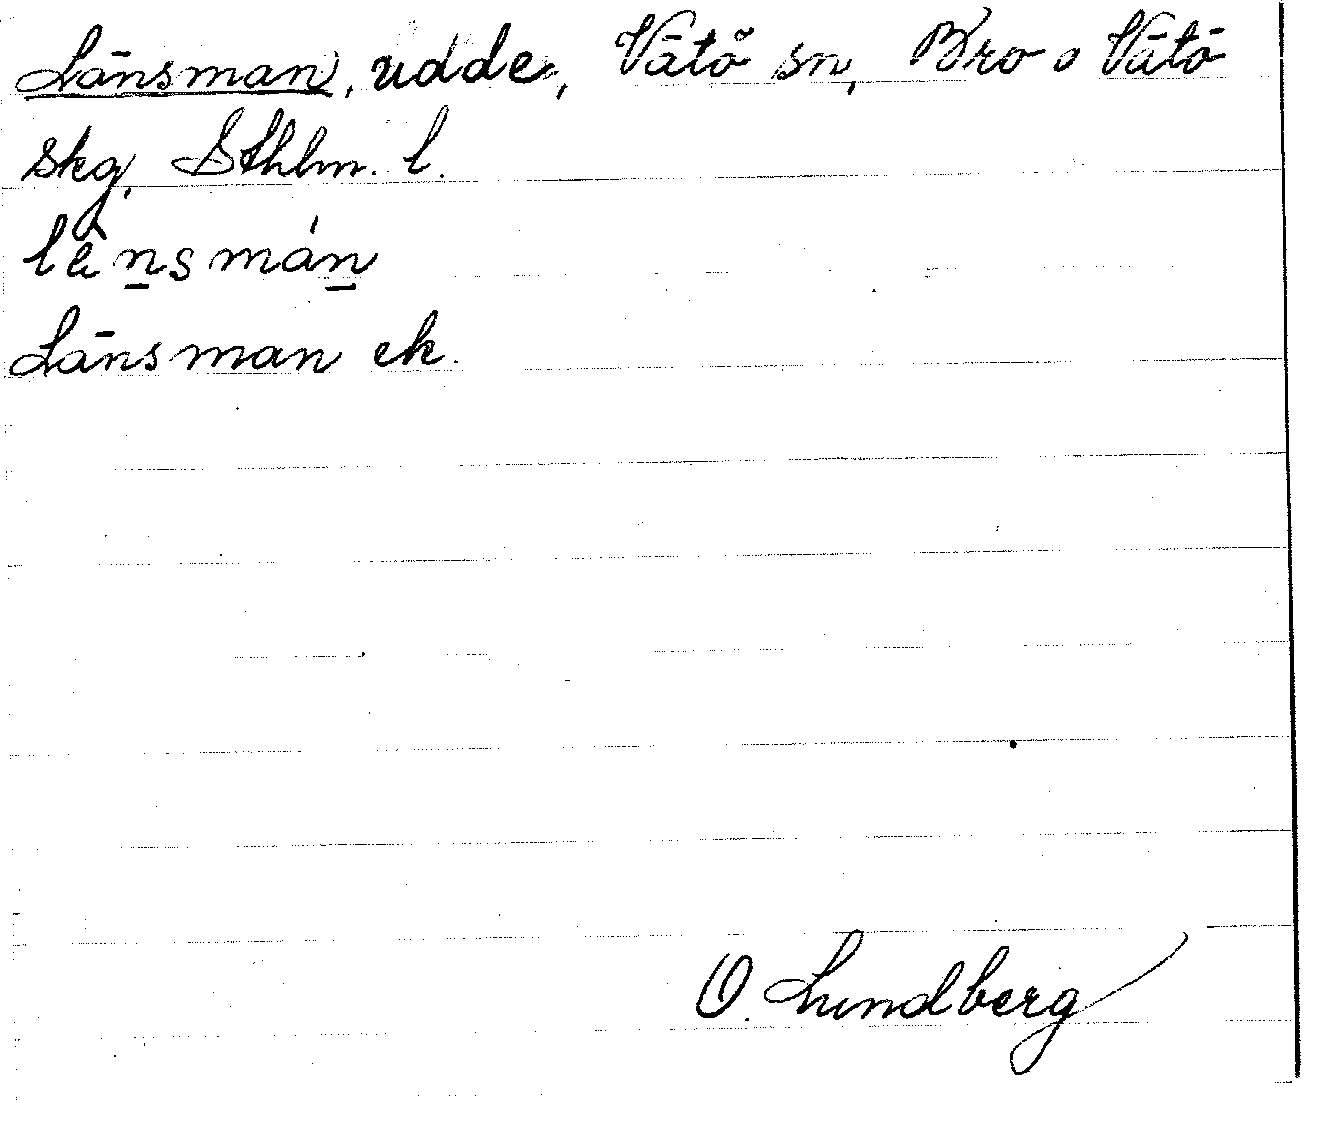 Länsman, udde, Vätö sn, Bro o Vätö
skg, Sthlm. l.
länsmán
Länsman ek.
O. Lundberg